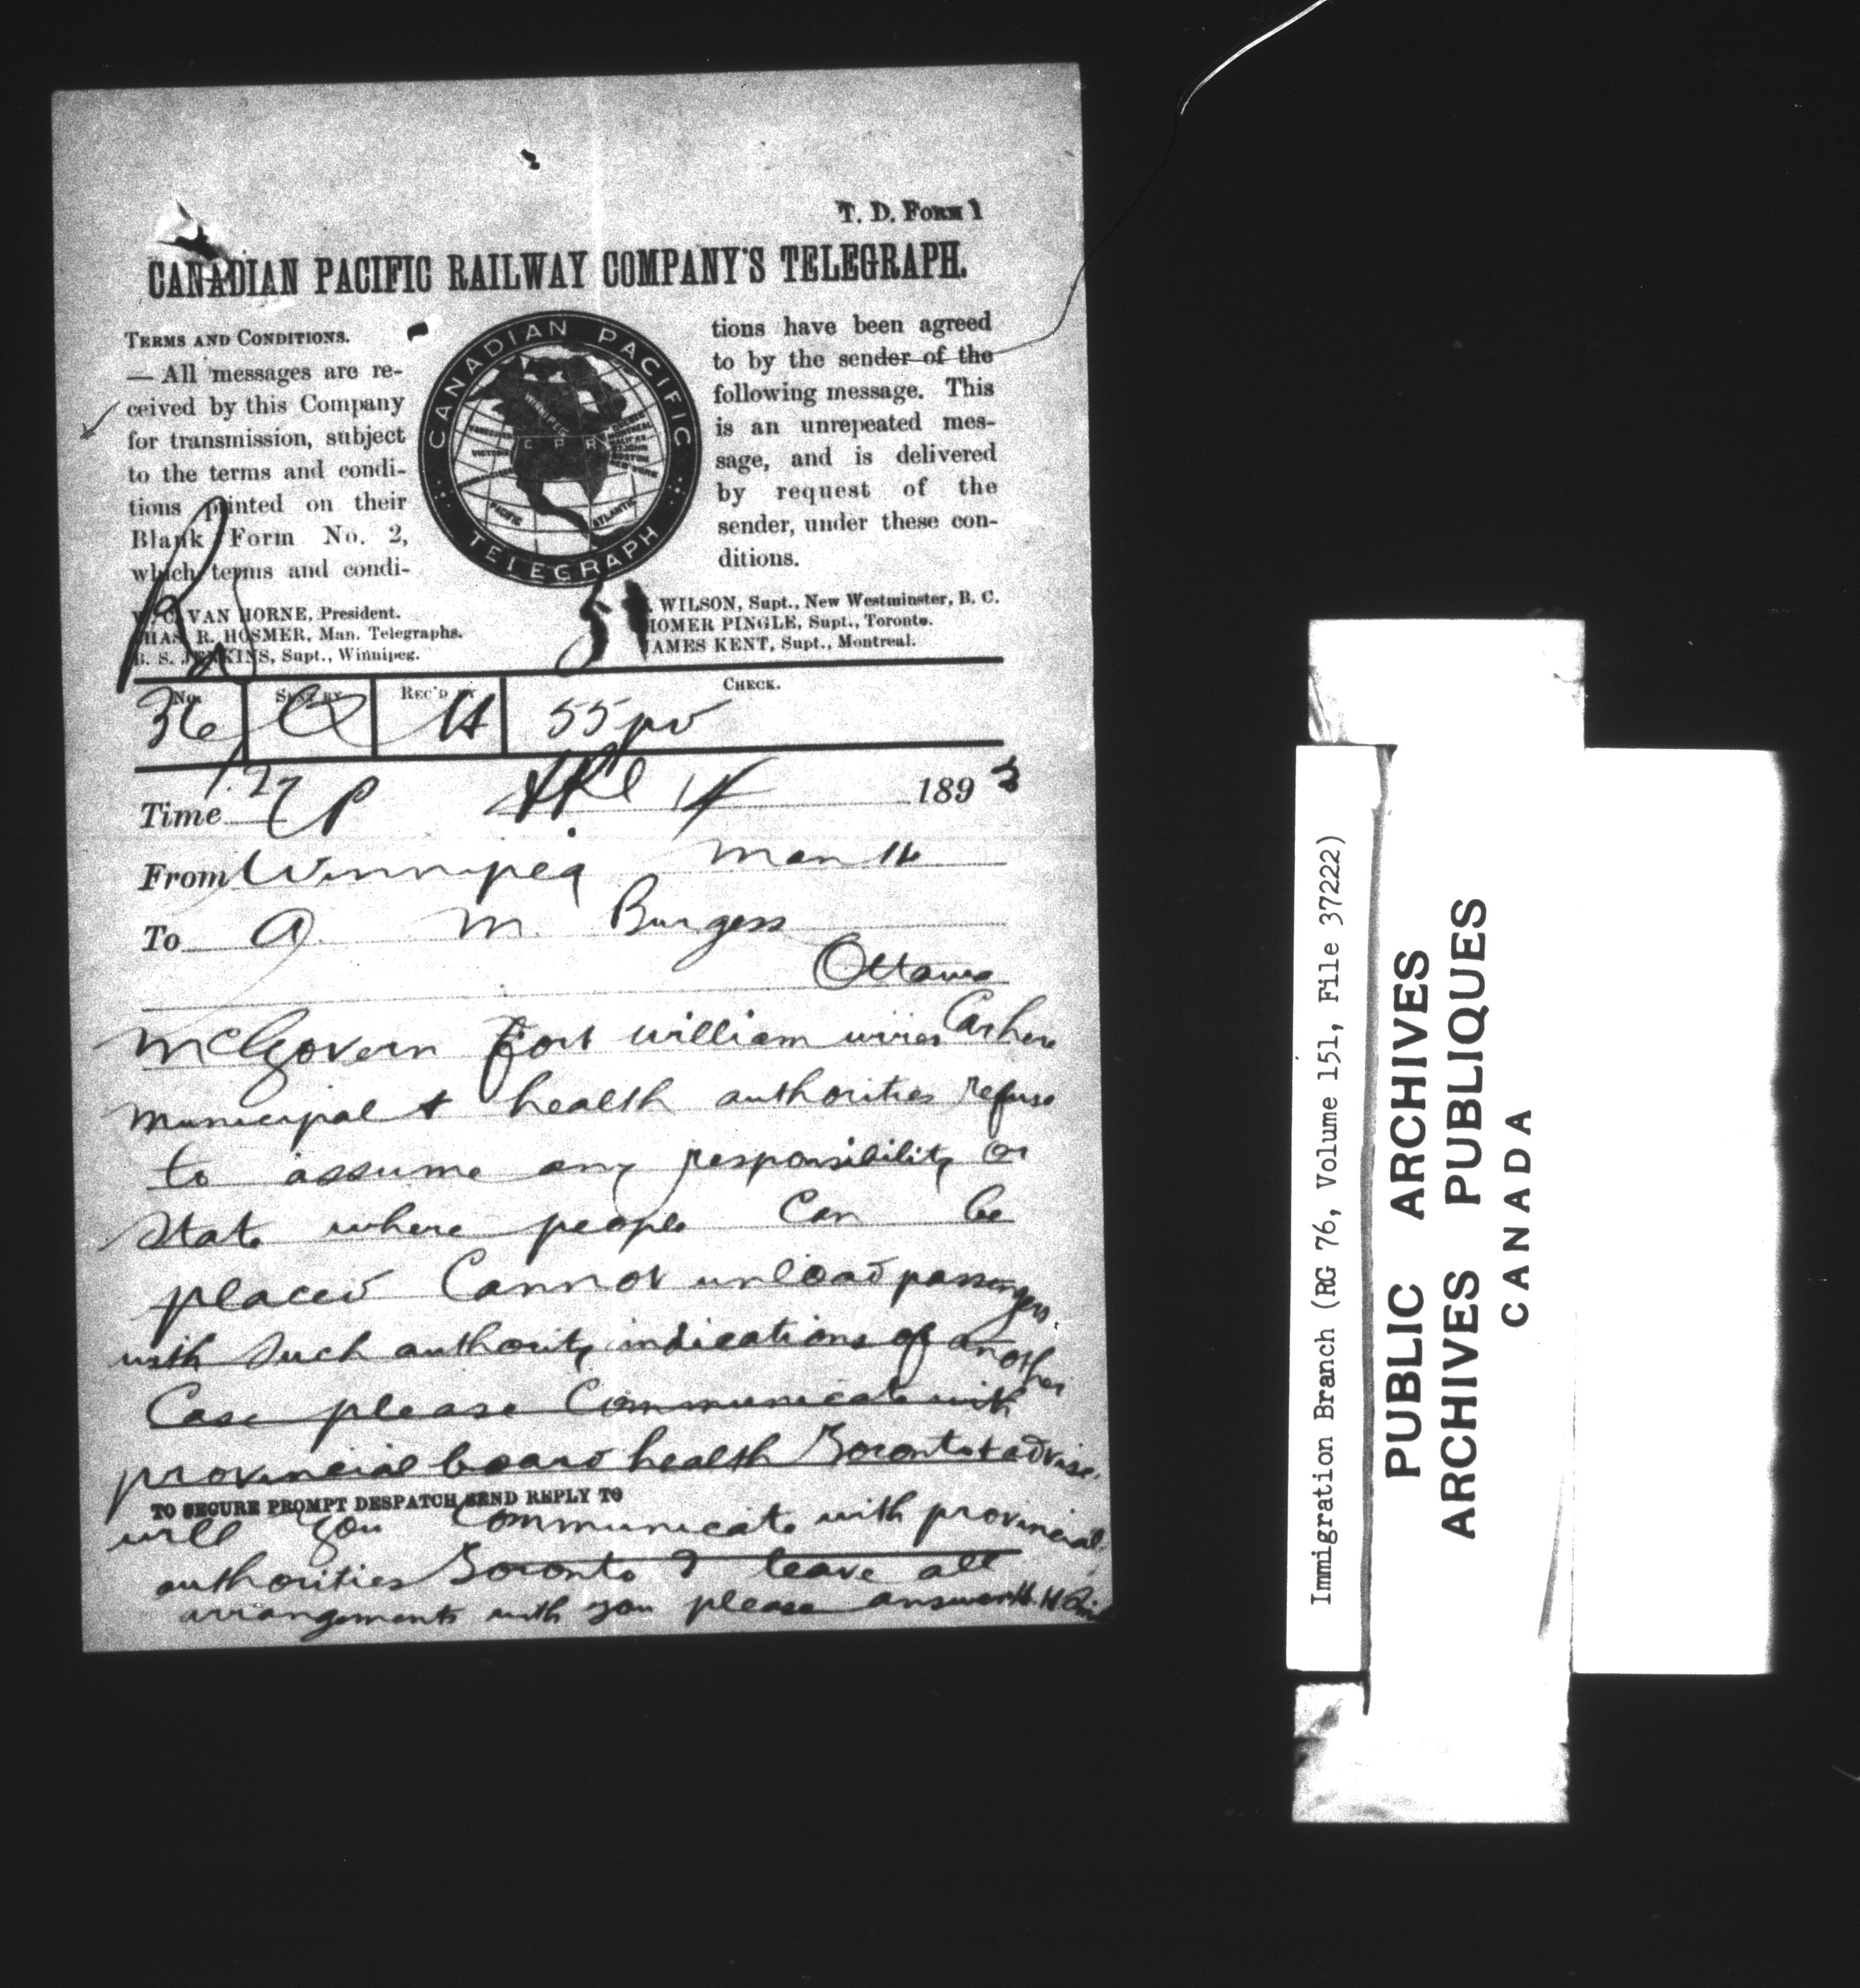 T. D. FORM 1
CANADIAN PACIFIC RAILWAY COMPANY'S TELEGRAPH.
TERMS AND CONDITIONS.
— All messages are re-
ceived by this Company
for transmission, subject
to the terms and condi-
tions printed on their
Blank Form No. 2,
which terms and condi-
CANADIAN PACIFIC
TELEGRAPH
WINNIPEG
C P R
PACIFIC
ATLANTIC
tions have been agreed
to by the sender of the
following message. This
is an unrepeated mes-
sage, and is delivered
by request of the
sender, under these con-
ditions.
VAN HORNE, President.
R. HOSMER, Man. Telegraphs.
B. S. JENKINS, Supt., Winnipeg.
WILSON, Supt., New Westminster, B. C.
HOMER PINGLE, Supt., Toronto.
JAMES KENT, Supt., Montreal.
No. SENT BY REC'D BY CHECK.
36 55
Time 1.27 P Apl 14 1893
From Winnipeg Man 14
To A. M. Burgess
Ottawa
McGovern Fort william wires
municipal & health authorities refuse
to assume any responsibility or
state where people can be
placed Cannot unload passengers
with such authority indications of another
Case please Communicate with
provincial board health Toronto & advise.
TO SECURE PROMPT DESPATCH SEND REPLY TO
will you Communicate with provincial
authorities Toronto I leave all
arrangements with you please answer H. H.
Immigration Branch (RG 76, Volume 151, File 37222)
PUBLIC ARCHIVES
ARCHIVES PUBLIQUES
CANADA